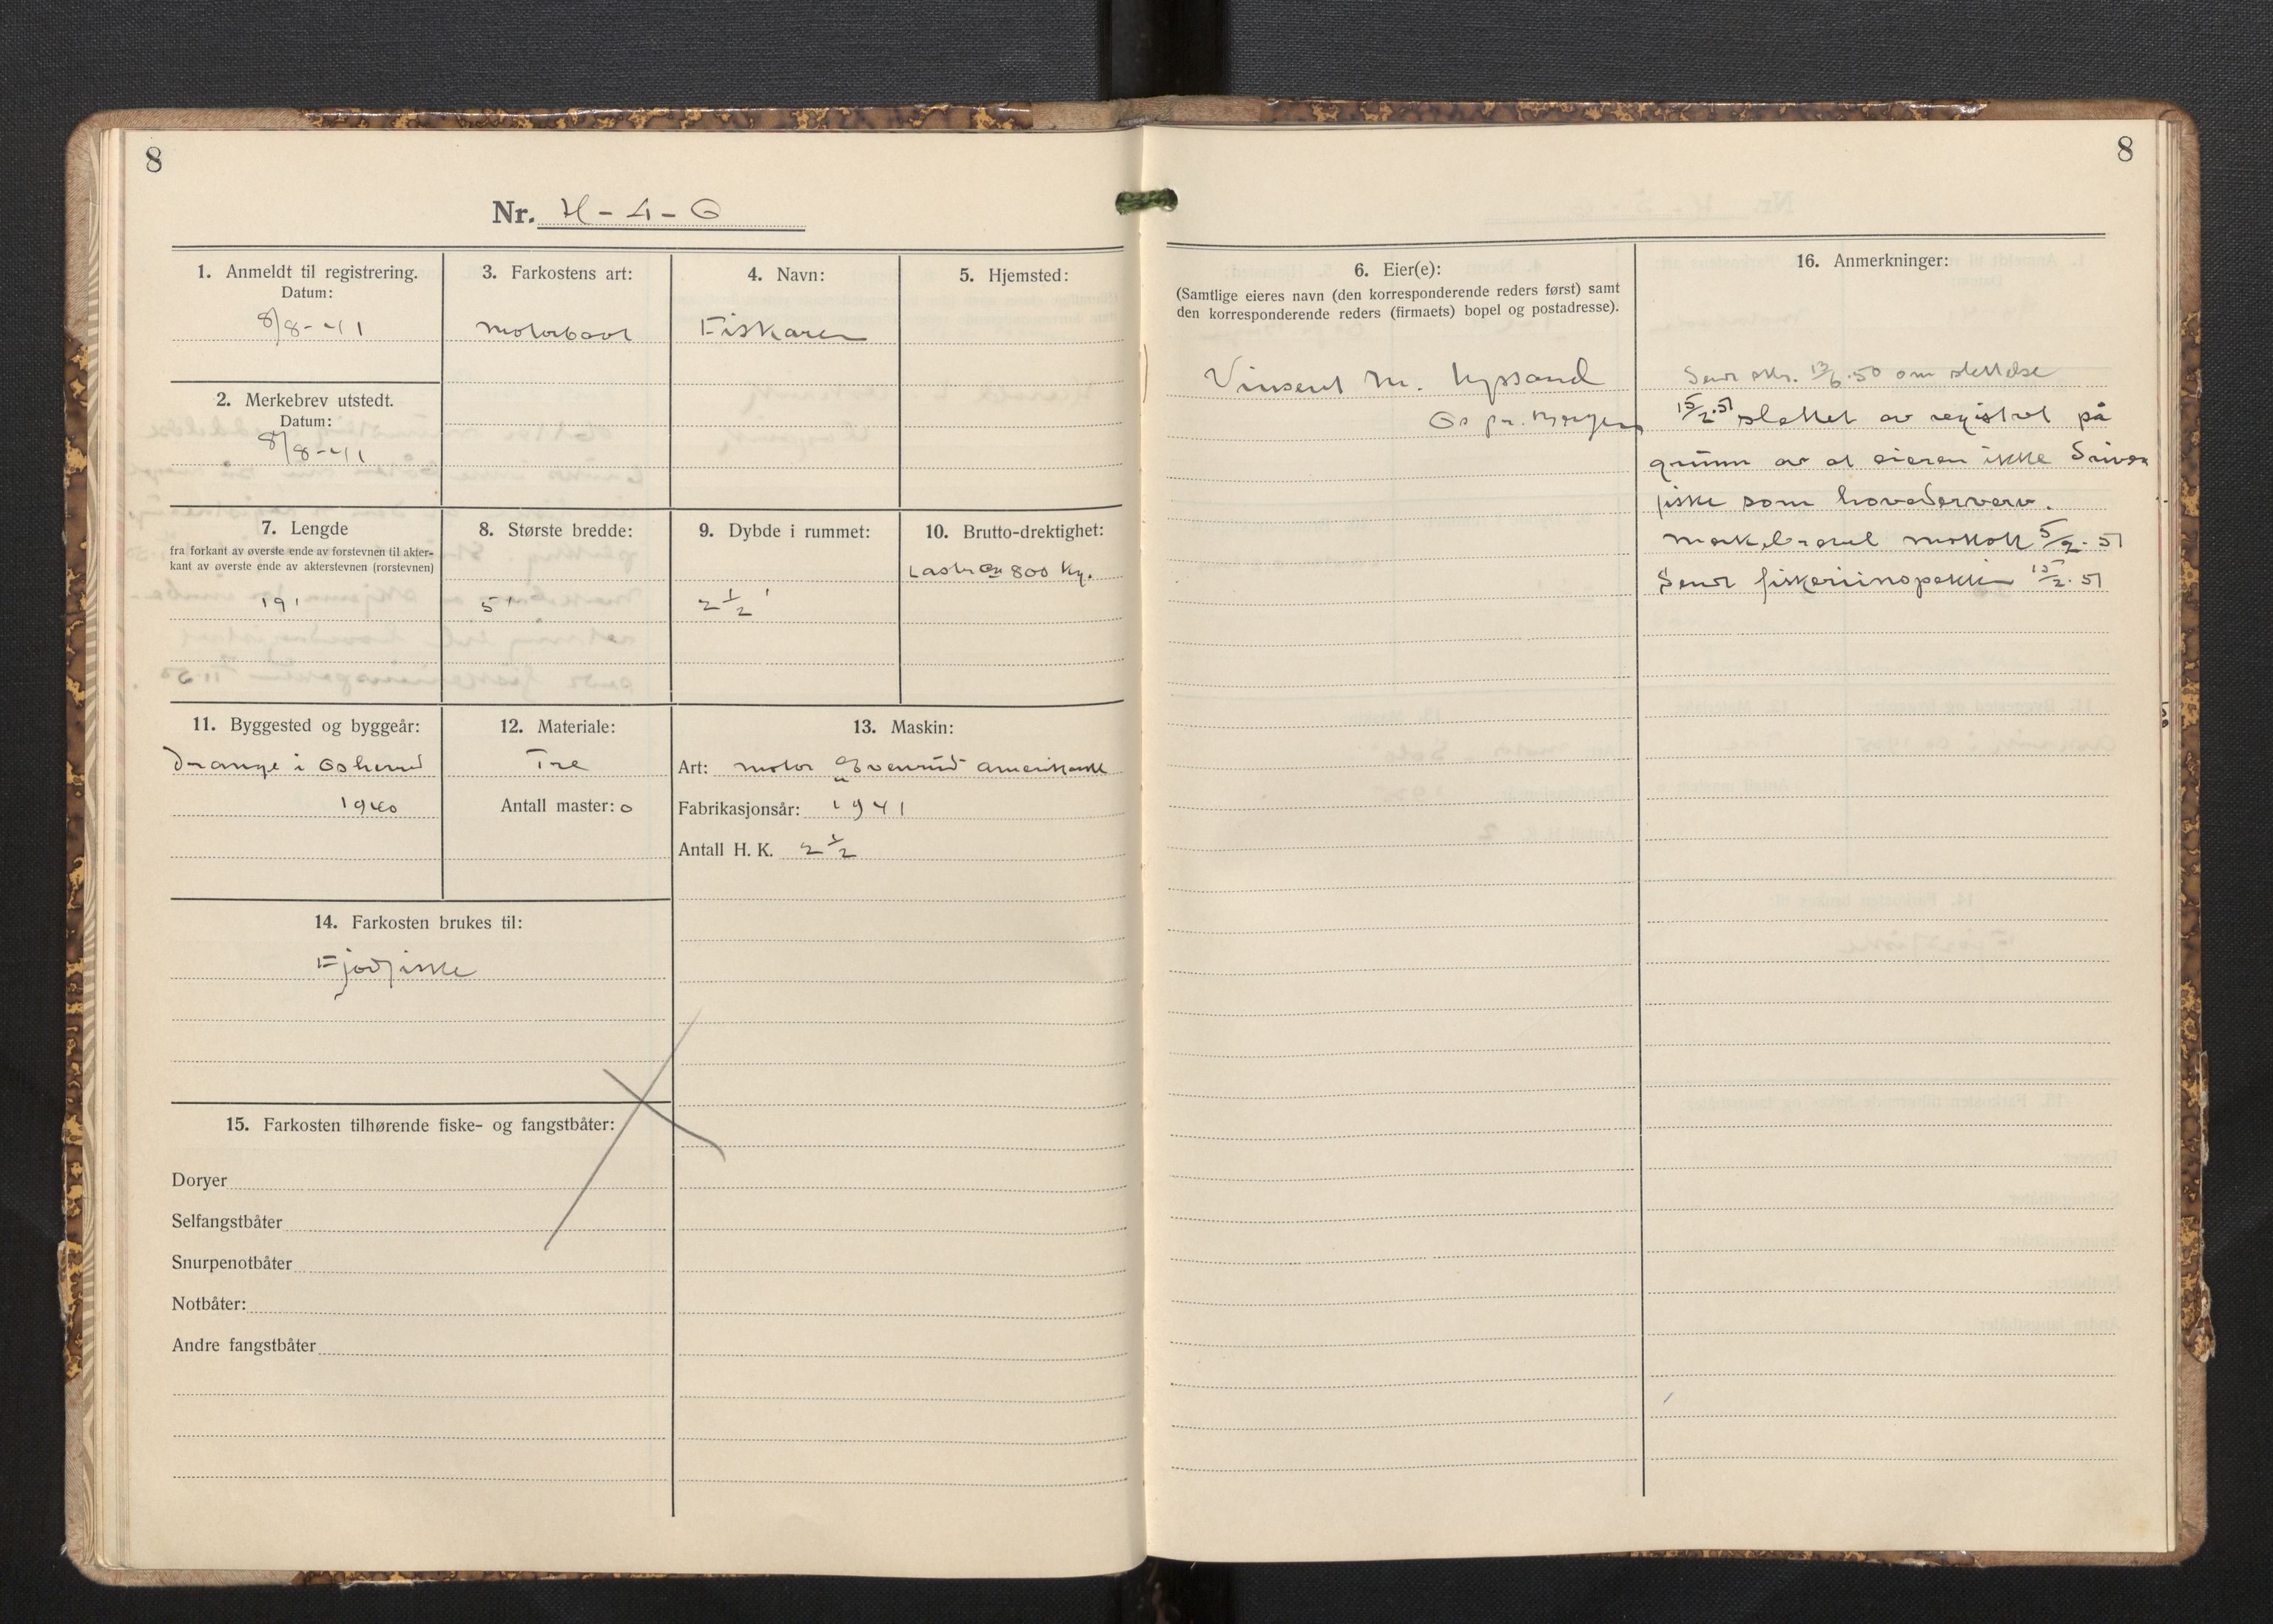 8
Nr. H-4-O
1. Anmeldt til registrering.
Datum:
8/8-41
2. Merkebrev utstedt.
Datum:
8/8-41
3. Farkostens art:
motorbaat
4. Navn:
Fiskaren
5. Hjemsted:
7. Lengde
fra forkant av øverste ende av forstevnen til akter-
kant av øverste ende av akterstevnen (rorstevnen)
19'
8. Største bredde:
5'
9. Dybde i rummet:
2 1/2'
10. Brutto-drektighet:
Laster ca 800 kg.
11. Byggested og byggeår:
Drange i Os herred
1940
12. Materiale:
Tre
Antall master: 0
13. Maskin:
Art: motor Evenrud amerikansk
Fabrikasjonsår: 1941
Antall H. K. 2 1/2
14. Farkosten brukes til:
Fjordfiske
15. Farkosten tilhørende fiske- og fangstbåter:
Doryer
Selfangstbåter
Snurpenotbåter
Notbåter:
Andre fangstbåter
8
6. Eier(e):
(Samtlige eieres navn (den korresponderende reders først) samt
den korresponderende reders (firmaets) bopel og postadresse).
Vinsent M. Lyssand
Os pr. Bergen
16. Anmerkninger:
Sendt skr. 13/6.50 om slettelse
15/2.51 slettet av registret på
grunn av at eieren ikke driver
fiske som hovederverv.
merkebrevet mottatt 5/2.51
Sendt fiskeriinspektøren 15/2.51